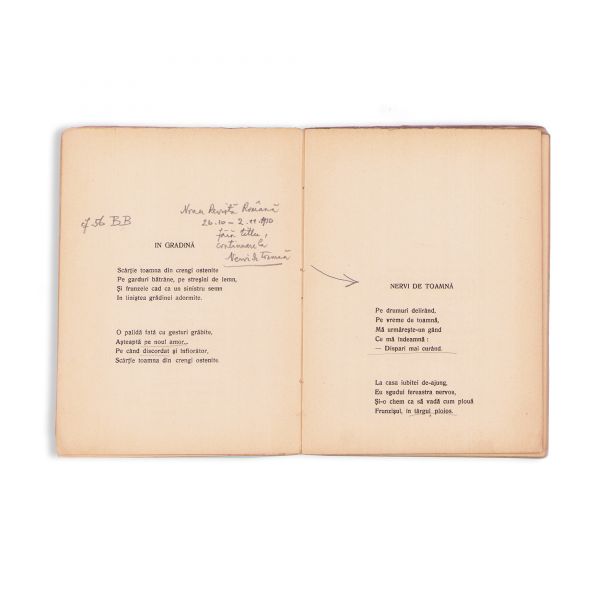 cf 56 BB
Noua Revistă Română
26.10 – 2.11.910
fără titlu,
continuare la
Nervi de toamnă
IN GRADINĂ
Scârție toamna din crengi ostenite
Pe garduri bătrâne, pe streșini de lemn,
Și frunzele cad ca un sinistru semn
In liniștea grădinei adormite.
O palidă fată cu gesturi grăbite,
Așteaptă pe noul amor...
Pe când discordat și înfiorător,
Scârție toamna din crengi ostenite.
NERVI DE TOAMNĂ
Pe drumuri delirând,
Pe vreme de toamnă,
Mă urmărește-un gând
Ce mă îndeamnă :
— Dispari mai curând.
La casa iubitei de-ajung,
Eu sgudui fereastra nervos,
Și-o chem ca să vadă cum plouă
Frunzișul, în târgul ploios.